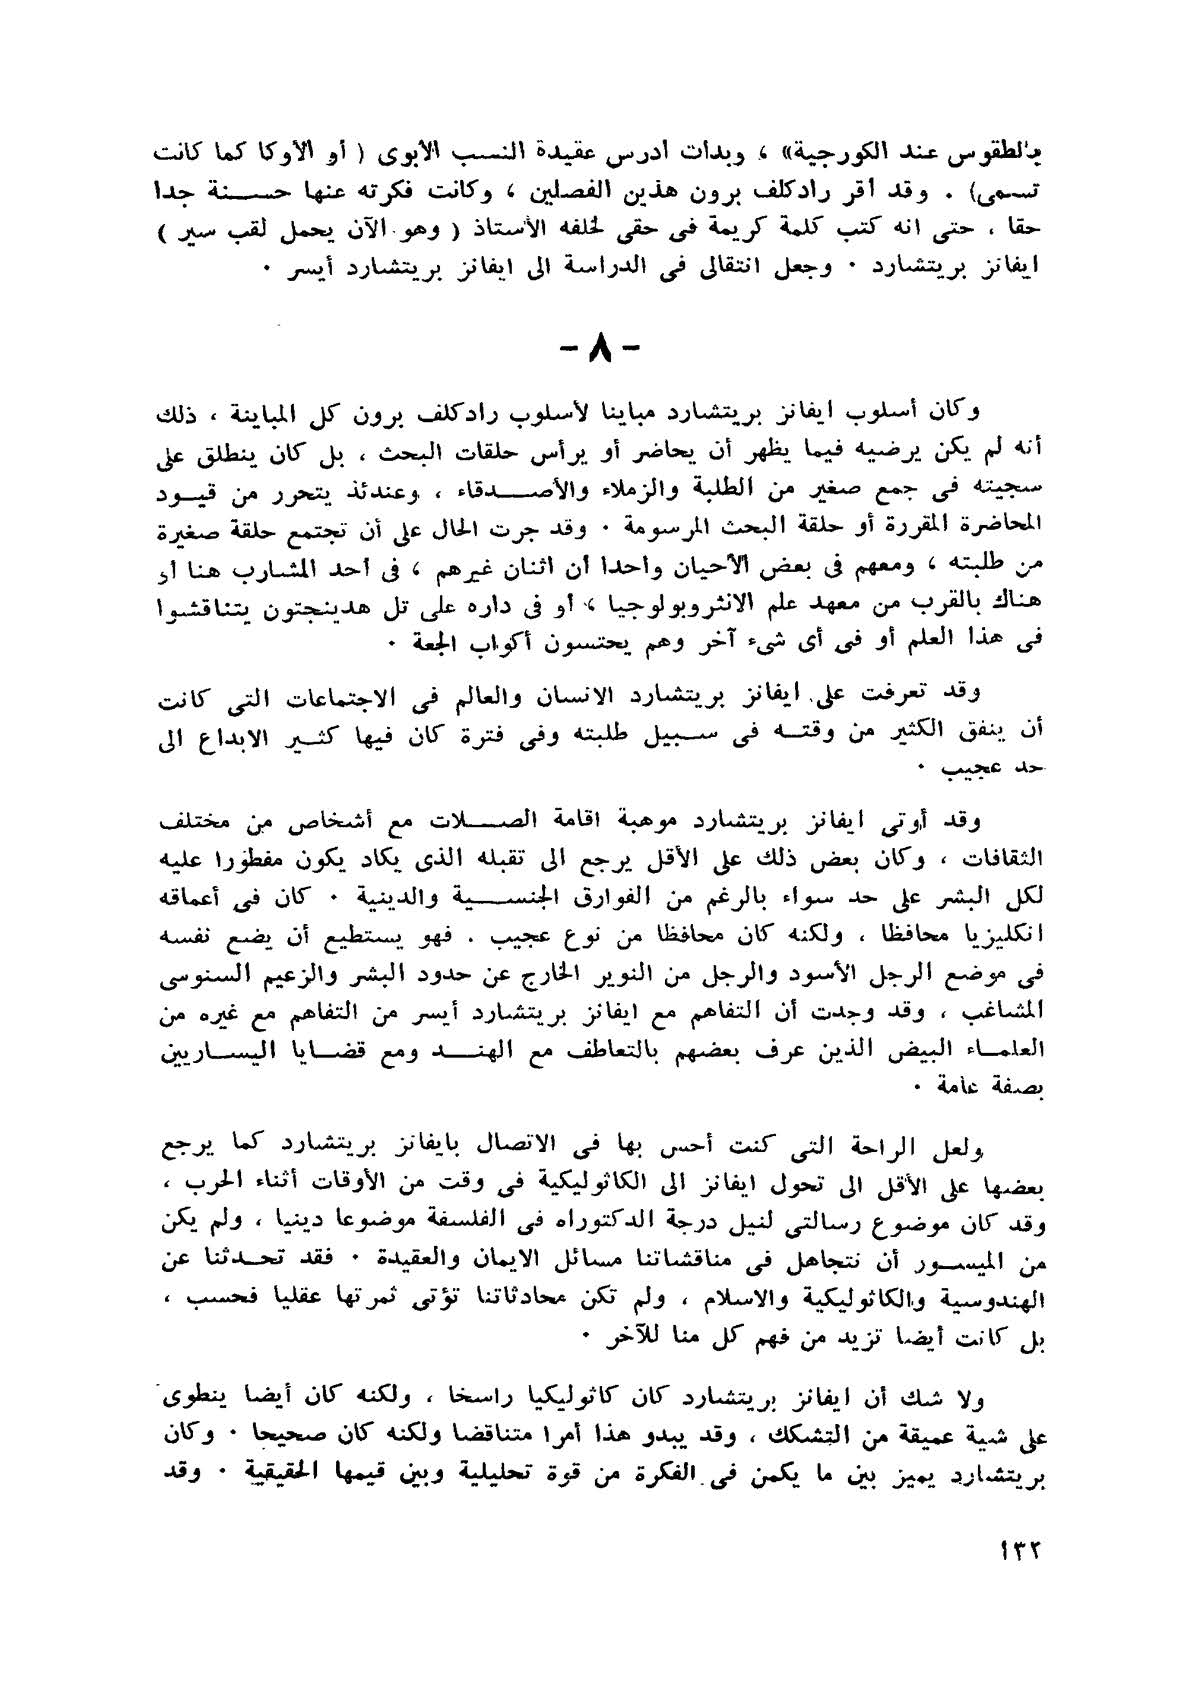 بالطقوس عند الكورجية» ، وبدأت أدرس عقيدة النسب الأبوى ( أو الأوكا كما كانت
تسمى) . وقد أقر رادكلف برون هذين الفصلين ، وكانت فكرته عنها حسنة جدا
حقا ، حتى انه كتب كلمة كريمة فى حقى لخلفه الأستاذ ( وهو الآن يحمل لقب سير )
ايفانز بريتشارد ٠ وجعل انتقالى فى الدراسة الى ايفانز بريتشارد أيسر ٠
- ٨ -
وكان أسلوب ايفانز بريتشارد مباينا لأسلوب رادكلف برون كل المباينة ، ذلك
أنه لم يكن يرضيه فيما يظهر أن يحاضر أو يرأس حلقات البحث ، بل كان ينطلق على
سجيته فى جمع صغير من الطلبة والزملاء والأصدقاء ، وعندئذ يتحرر من قيود
المحاضرة المقررة أو حلقة البحث المرسومة ٠ وقد جرت الحال على أن تجتمع حلقة صغيرة
من طلبته ، ومعهم فى بعض الأحيان واحدا أن اثنان غيرهم ، فى أحد المشارب هنا أو
هناك بالقرب من معهد علم الانثروبولوجيا ، أو فى داره على تل هدينجتون يتناقشوا
فى هذا العلم أو فى أى شىء آخر وهم يحتسون أكواب الجعة ٠
وقد تعرفت على ايفانز بريتشارد الانسان والعالم فى الاجتماعات التى كانت
أن ينفق الكثير من وقته فى سبيل طلبته وفى فترة كان فيها كثير الابداع الى
حد عجيب ٠
وقد أوتى ايفانز بريتشارد موهبة اقامة الصلات مع أشخاص من مختلف
الثقافات ، وكان بعض ذلك على الأقل يرجع الى تقبله الذى يكاد يكون مفطورا عليه
لكل البشر على حد سواء بالرغم من الفوارق الجنسية والدينية ٠ كان فى أعماقه
انكليزيا محافظا ، ولكنه كان محافظا من نوع عجيب . فهو يستطيع أن يضع نفسه
فى موضع الرجل الأسود والرجل من النوير الخارج عن حدود البشر والزعيم السنوسى
المشاغب ، وقد وجدت أن التفاهم مع ايفانز بريتشارد أيسر من التفاهم مع غيره من
العلماء البيض الذين عرف بعضهم بالتعاطف مع الهند ومع قضايا اليساريين
بصفة عامة ٠
ولعل الراحة التى كنت أحس بها فى الاتصال بايفانز بريتشارد كما يرجع
بعضها على الأقل الى تحول ايفانز الى الكاثوليكية فى وقت من الأوقات أثناء الحرب ،
وقد كان موضوع رسالتى لنيل درجة الدكتوراه فى الفلسفة موضوعا دينيا ، ولم يكن
من الميسور أن نتجاهل فى مناقشاتنا مسائل الايمان والعقيدة ٠ فقد تحدثنا عن
الهندوسية والكاثوليكية والاسلام ، ولم تكن محادثاتنا تؤتى ثمرتها عقليا فحسب ،
بل كانت أيضا تزيد من فهم كل منا للآخر ٠
ولا شك أن ايفانز بريتشارد كان كاثوليكيا راسخا ، ولكنه كان أيضا ينطوى
على شية عميقة من التشكك ، وقد يبدو هذا أمرا متناقضا ولكنه كان صحيحا ٠ وكان
بريتشارد يميز بين ما يكمن فى الفكرة من قوة تحليلية وبين قيمها الحقيقية ٠ وقد
١٣٢